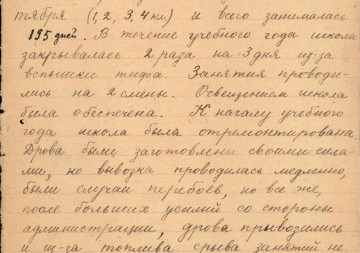 тября (1, 2, 3, 4 кл) и всего занималась
195 дней. В течение учебного года школа
закрывалась 2 раза на 3 дня из-за
вспышки тифа. Занятия проводи-
лись на 2 смены. Освещением школа
была обеспечена. К началу учебного
года школа была отремонтирована.
Дрова были заготовлены своими сила-
ми, но вывозка проводилась медленно,
были случаи перебоев, но все же,
после больших усилий со стороны
администрации, дрова привозились
и из-за топлива срыва занятий не